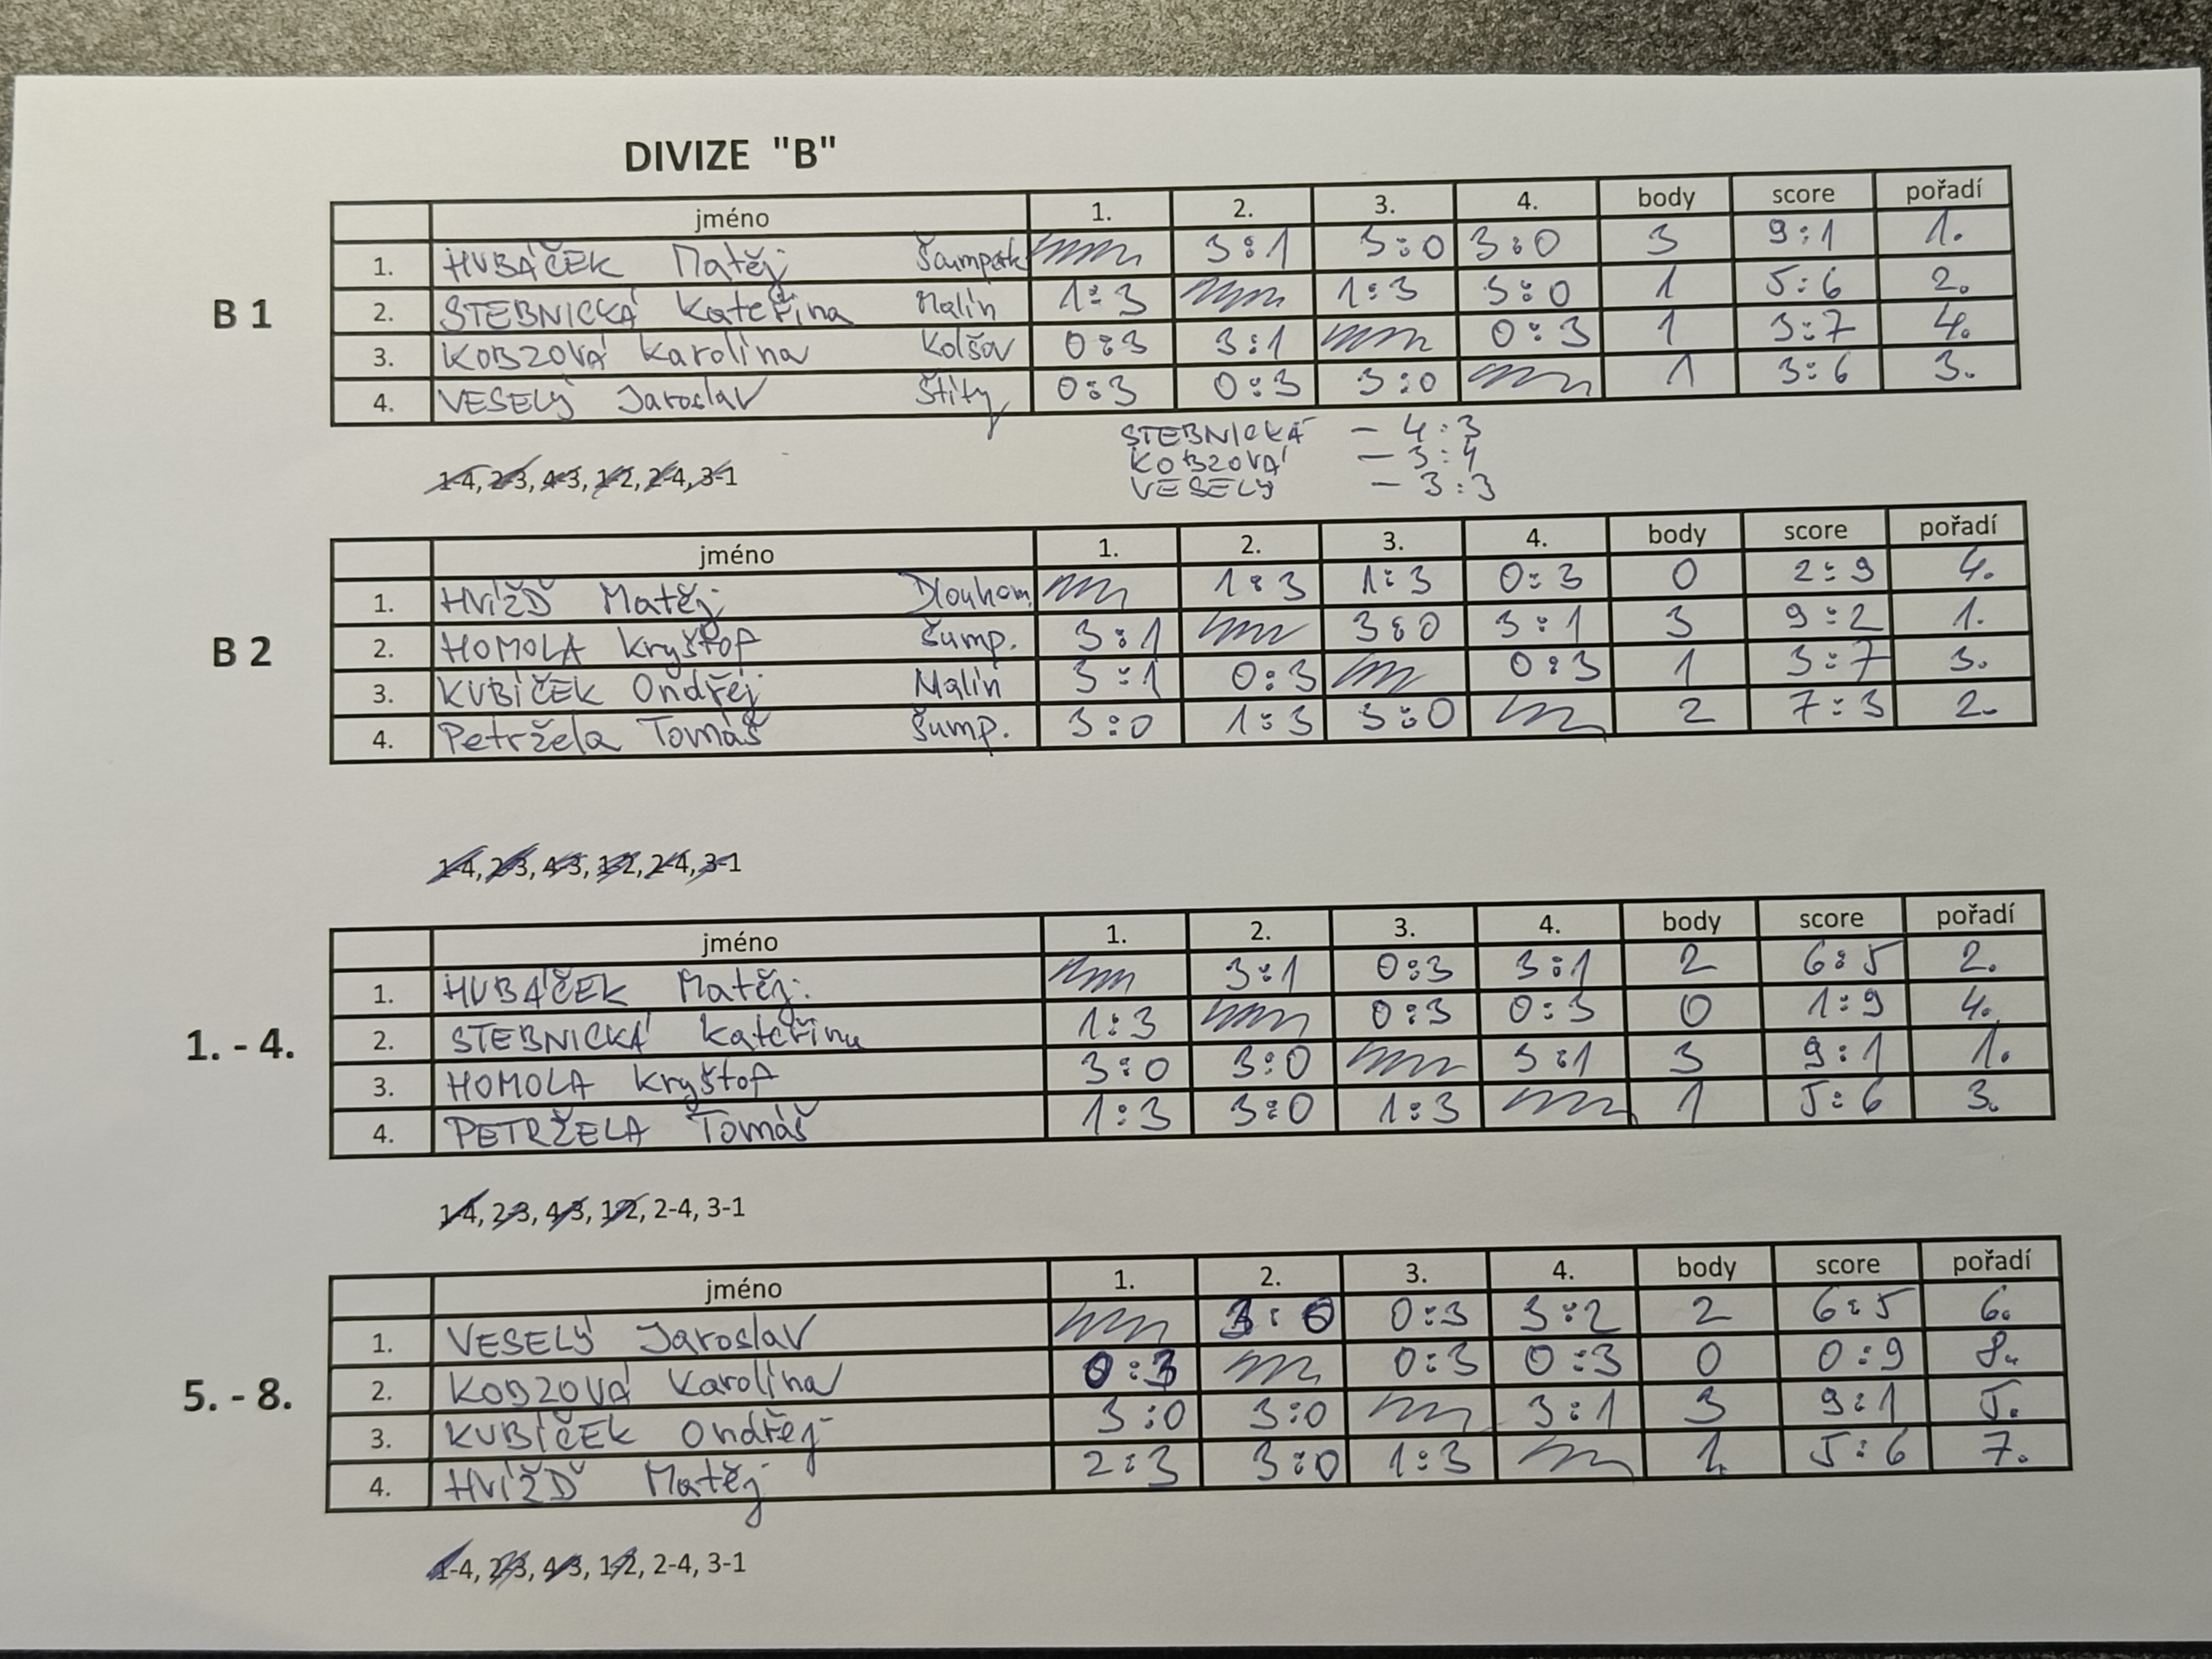 DIVIZE "B"
jméno 1. 2. 3. 4. body score pořadí
1. HUBÁČEK Matěj Šumperk 3:1 3:0 3:0 3 9:1 1.
B 1
2. STEBNICKÁ Kateřina Malín 1:3 1:3 3:0 1 5:6 2.
3. KOBZOVÁ Karolína Kolšov 0:3 3:1 0:3 1 3:7 4.
4. VESELÝ Jaroslav Štíty 0:3 0:3 3:0 1 3:6 3.
STEBNICKÁ - 4:3
KOBZOVÁ - 3:4
VESELÝ - 3:3
1-4, 2-3, 4-3, 1-2, 2-4, 3-1
jméno 1. 2. 3. 4. body score pořadí
1. HVÍŽĎ Matěj Dlouhom. 1:3 1:3 0:3 0 2:9 4.
B 2
2. HOMOLA Kryštof Šump. 3:1 3:0 3:1 3 9:2 1.
3. KUBÍČEK Ondřej Malín 3:1 0:3 0:3 1 3:7 3.
4. Petržela Tomáš Šump. 3:0 1:3 3:0 2 7:3 2.
1-4, 2-3, 4-3, 1-2, 2-4, 3-1
jméno 1. 2. 3. 4. body score pořadí
1. HUBÁČEK Matěj 3:1 0:3 3:1 2 6:5 2.
1. - 4.
2. STEBNICKÁ Kateřina 1:3 0:3 0:3 0 1:9 4.
3. HOMOLA Kryštof 3:0 3:0 3:1 3 9:1 1.
4. PETRŽELA Tomáš 1:3 3:0 1:3 1 5:6 3.
1-4, 2-3, 4-3, 1-2, 2-4, 3-1
jméno 1. 2. 3. 4. body score pořadí
1. VESELÝ Jaroslav 3:0 0:3 3:2 2 6:5 6.
5. - 8.
2. KOBZOVÁ Karolína 0:3 0:3 0:3 0 0:9 8.
3. KUBÍČEK Ondřej 3:0 3:0 3:1 3 9:1 5.
4. HVÍŽĎ Matěj 2:3 3:0 1:3 1 5:6 7.
1-4, 2-3, 4-3, 1-2, 2-4, 3-1